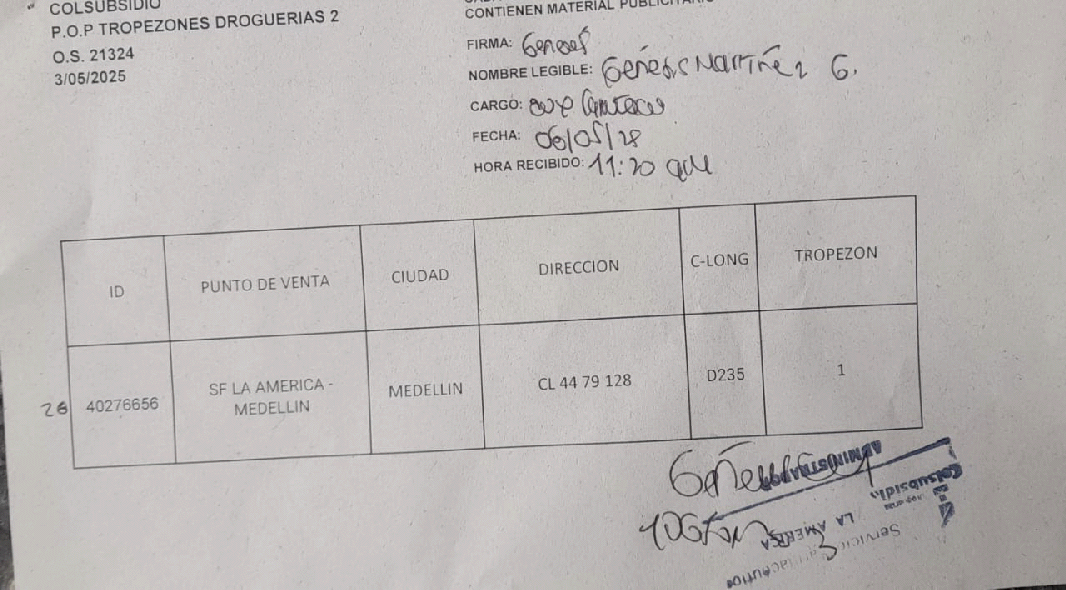 COLSUBSIDIO
P.O.P TROPEZONES DROGUERIAS 2
O.S. 21324
3/05/2025
CONTIENEN MATERIAL PUBLICITARIO
FIRMA:
NOMBRE LEGIBLE: Genesis Martinez G.
CARGO:
FECHA: 06/05/28
HORA RECIBIDO: 11:20 am
ID PUNTO DE VENTA CIUDAD DIRECCION C-LONG TROPEZON
26 40276656 SF LA AMERICA - MEDELLIN MEDELLIN CL 44 79 128 D235 1
ADMINISTRADOR
Colsubsidio
LA AMERICA